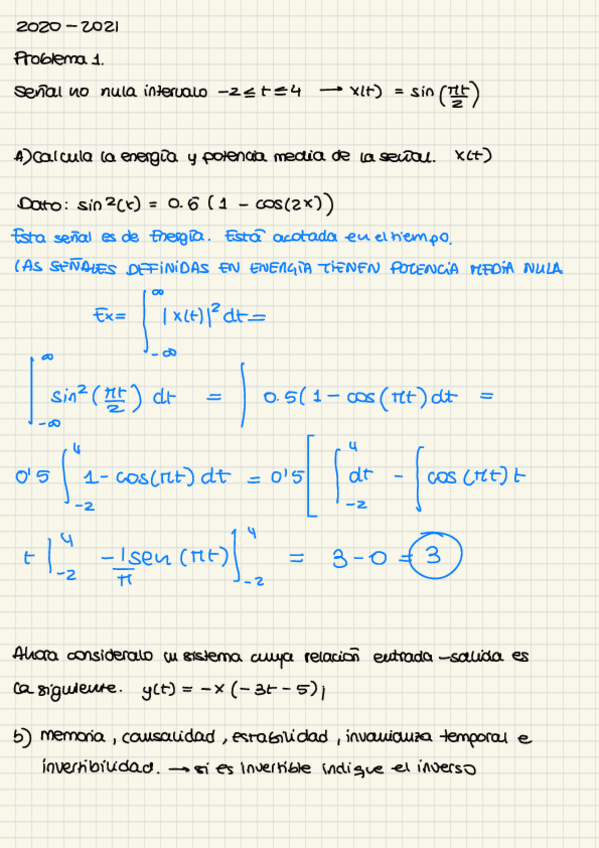 2020-2021
Problema 1.
Señal no nula intervalo -2 ≤ t ≤ 4 → x(t) = sin(πt/2)
A) Calcula la energía y potencia media de la señal. x(t)
Dato: sin²(x) = 0.6 (1 - cos(2x))
Esta señal es de Energía. Está acotada en el tiempo.
LAS SEÑALES DEFINIDAS EN ENERGÍA TIENEN POTENCIA MEDIA NULA
Ex = ∫_{-∞}^{∞} |x(t)|² dt =
∫_{-∞}^{∞} sin²(πt/2) dt = ∫ 0.5(1 - cos(πt) dt =
0'5 ∫_{-2}^{4} 1 - cos(πt) dt = 0'5 [ ∫_{-2}^{4} dt - ∫ cos(πt) t
t |_{-2}^{4} - 1/π sen(πt) ]_{-2}^{4} = 3 - 0 = 3
Ahora consideralo un sistema cuya relación entrada-salida es
la siguiente. y(t) = -x(-3t-5);
b) memoria, causalidad, estabilidad, invarianza temporal e
invertibilidad. → si es invertible indique el inverso